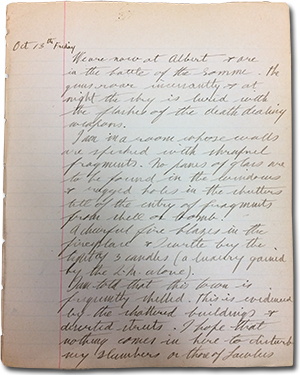 Oct 13th Friday
We are now at Albert & are
in the battle of the Somme. The
guns roar incessantly & at
night the sky is lurid with
the flashes of the death dealing
weapons.
I am in a room whose walls
are splashed with shrapnel
fragments. No panes of glass are
to be found in the windows
& ragged holes in the shutters
tell of the entry of fragments
from shell or bomb.
A cheerful fire blazes in the
fireplace & I write by the
light of 3 candles (a luxury gained
by the
I am told that this town is
frequently shelled. This is evidenced
by the shattered buildings &
deserted streets. I hope that
nothing comes in here to disturb
my slumbers or those of